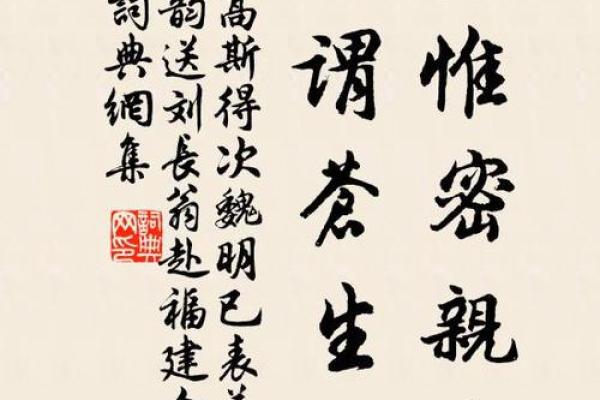 惟密親
謂蒼生
高斯得次魏明已表
韵送刘長翁赴福建
詞典網集
詞典网印